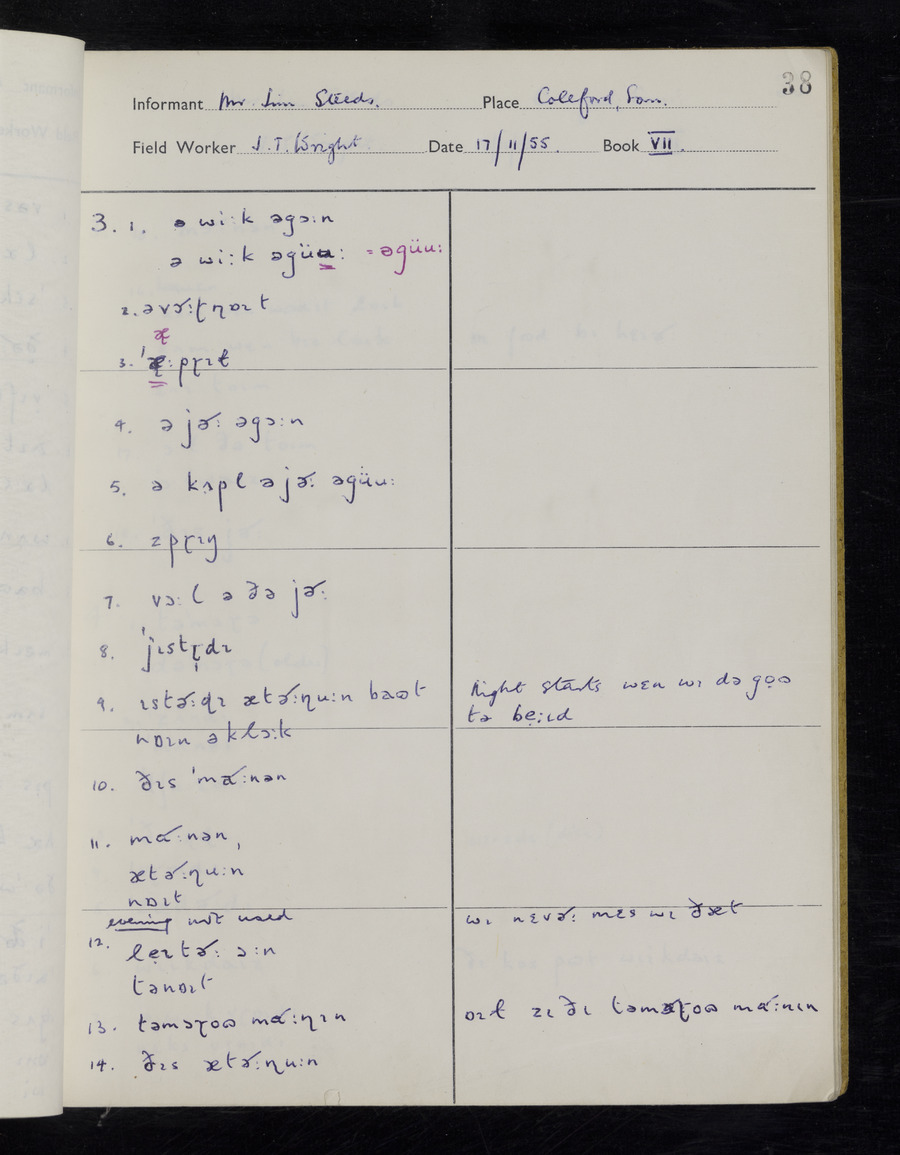 38
Informant Mr Jim Steeds. Place Coleford, Som.
Field Worker J.T.Wright Date 17/11/55. Book VII.
3. 1. ə wiːk əgɔːn
ə wiːk əgüuː = əgüuː
2. əvɚːʈɳɒɪt
æ
3. ˈæːpɽɪɫ
4. ə jɚː əgɔːn
5. ə kʌpl ə jɚː əgüuː
6. zpɽɪŋ
7. vɔːl ə ðə jɚː
8. ˈjɪstɽdɪ
9. ɪstɚːɖɪ ætɚːɳuːn baʊt
nɒɪn əklɔːk
Night starts wɛn wɪ də gọʊ
tə bẹːɪd
10. ðɪs ˈmɑ˞ːnən
11. mɑ˞ːnən,
ætɚːɳuːn
nɒɪt
evening not used
wɪ nɛvɚː mɛs wɪ ðæt
12. lẹɪtɚː ɔːn
tənɒɪt
13. təmɔɽoʊ mɑ˞ːɳɪn
ɒɪt zɪ ðɪ təmɔɽoʊ mɑ˞ːnɪn
14. ðɪs ætɚːɳuːn